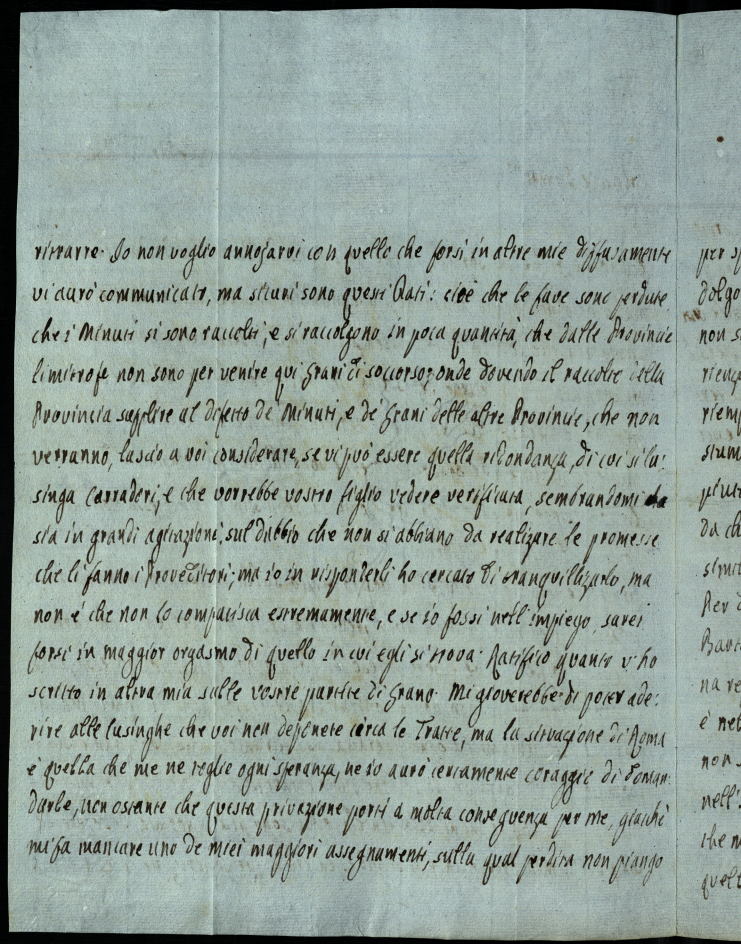 ritrarre. Io non voglio annojarvi con quello che forsi in altre mie diffusamente
vi avrò communicato, ma sicuri sono questi Dati: cioè che le fave sono perdute,
che i Minuti si sono raccolti, e si raccolgono in poca quantità, che dalle Provincie
limitrofe non sono per venire qui Grani di soccorso; onde dovendo il raccolto della
Provincia supplire al difetto de Minuti, e de Grani delle altre Provincie, che non
verranno, lascio a voi considerare, se vi può essere quella ridondanza, di cui si lu:
singa Carraderi, e che vorrebbe vostro figlio vedere verificata, sembrandomi
sia in grandi agitazioni, sul dubbio che non si abbiano da realizare le promesse
che li fanno i Proveditori; ma io in risponderli ho cercato di tranquillizarlo, ma
non è che non lo compatisca estremamente, e se io fossi nell'impiego, sarei
forsi in maggior orgasmo di quello in cui egli si trova. Ratifico quanto vi ho
scritto in altra mia sulle vostre partite di Grano. Mi gioverebbe di poter ade:
rire alle lusinghe che voi non deponete circa le Tratte, ma la situazione di Roma
è quella che me ne toglie ogni speranza, ne io avrò certamente coraggio di doman:
darle, non ostante che questa privazione porti a molta conseguenza per me, giacchè
mi fa mancare uno de miei maggiori assegnamenti, sulla qual perdita non piango
per
non
Per
è
non
nell'
che